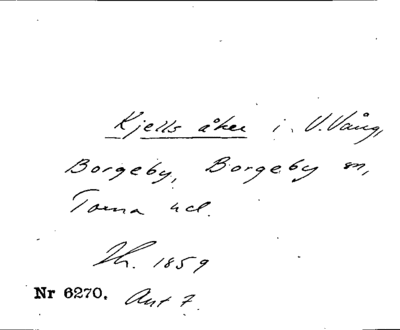 Kjells åker i V. Vång,
Borgeby, Borgeby sn,
Torna hd.
Zh. 1859
Nr 6270. Ant 7.